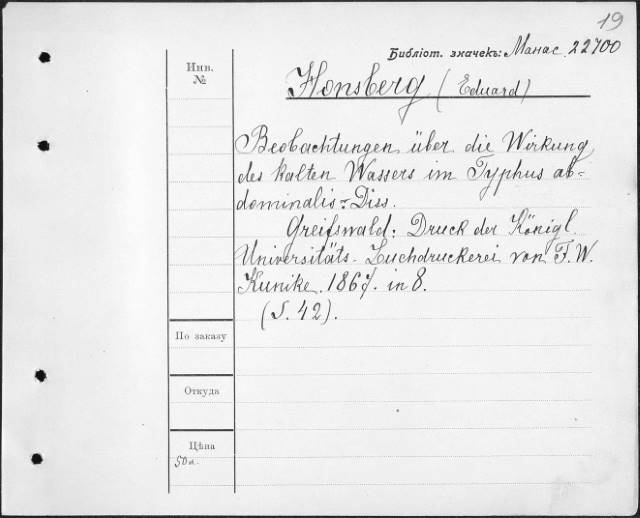 19
Библіот. значекъ: Манас. 22700
Инв.
№
Honsberg (Eduard)
Beobachtungen über die Wirkung
des kalten Wassers im Typhus ab=
dominalis.-Diss.
Greifswald: Druck der Königl.
Universitäts-Buchdruckerei von F. W.
Kunike. 1867. in 8.
(S. 42).
По заказу
Откуда
Цѣна
50к.